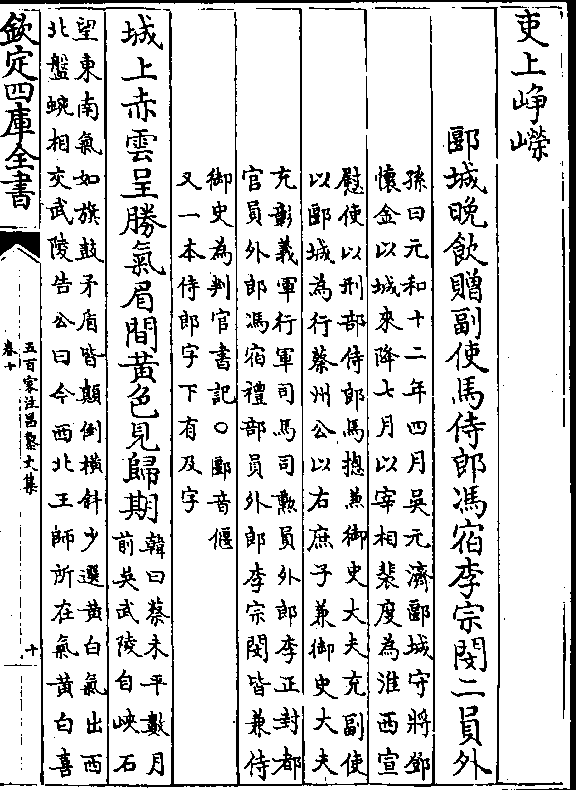 吏上崢嶸
郾城晚飲贈副使馬侍郎馮宿李宗閔二員外
孫曰元和十二年四月吳元濟郾城守將鄧
懷金以城來降七月以宰相裴度為淮西宣
慰使以刑部侍郎馬摠兼御史大夫充副使
以郾城為行蔡州公以右庶子兼御史大夫
充彰義軍行軍司馬司勲員外郎李正封都
官員外郎馮宿禮部員外郎李宗閔皆兼侍
御史為判官書記○郾音偃
又一本侍郎字下有及字
城上赤雲呈勝氣眉間黃色見歸期
韓曰蔡未平數月
前吳武陵自峽石
望東南氣如旗鼓矛盾皆顛倒橫斜少選黃白氣出西
北盤蜿相交武陵告公曰今西北王師所在氣黃白喜
欽定四庫全書
五百家注昌黎文集
卷十
十